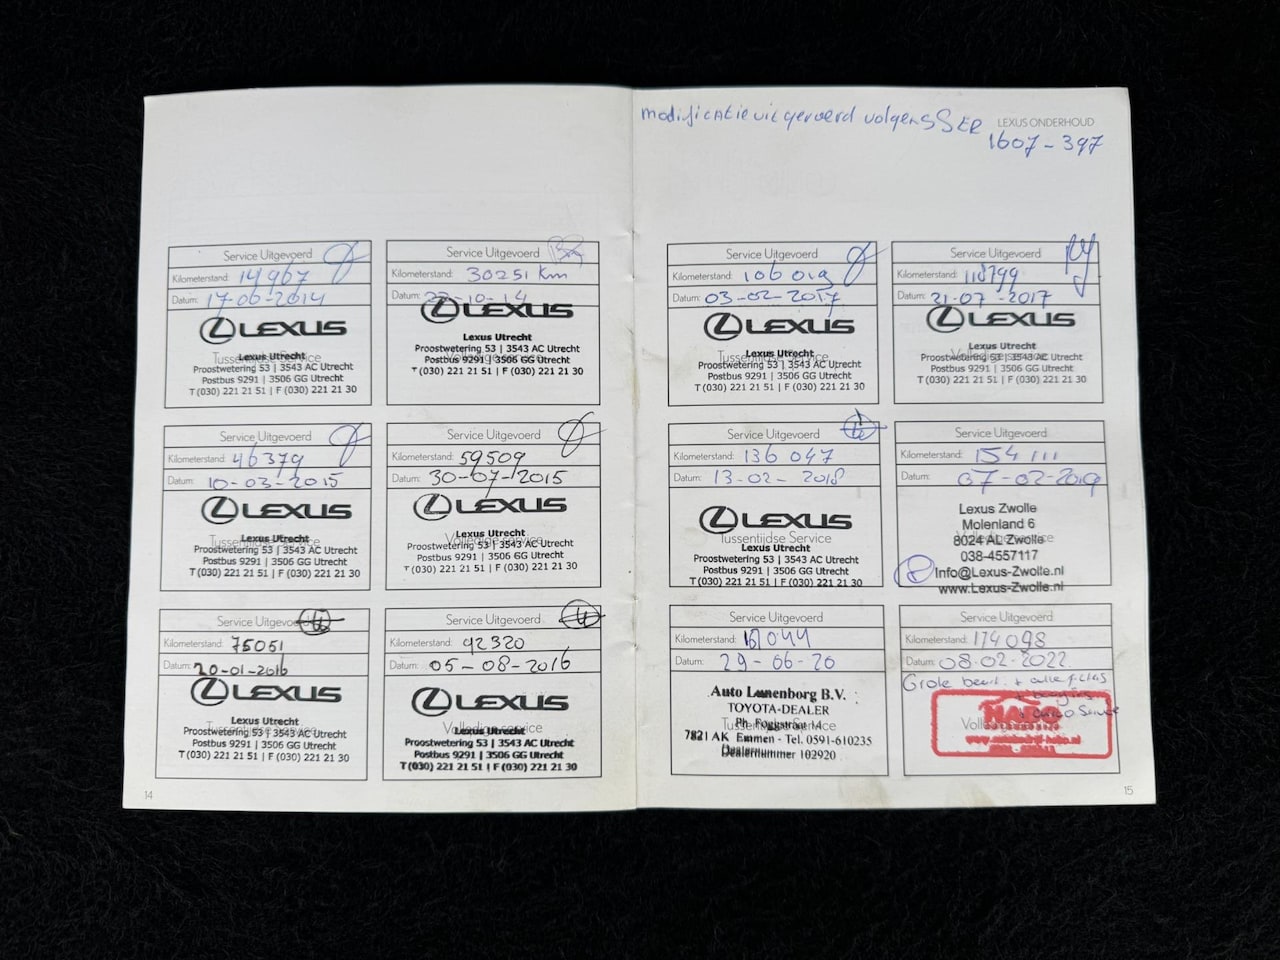 modificatie uitgevoerd volgens SSER
LEXUS ONDERHOUD
1607-397
Service Uitgevoerd
Kilometerstand: 14967
Datum: 17-06-2014
LEXUS
Tussentijdse Service
Lexus Utrecht
Proostwetering 53 | 3543 AC Utrecht
Postbus 9291 | 3506 GG Utrecht
T (030) 221 21 51 | F (030) 221 21 30
Service Uitgevoerd
Kilometerstand: 30251 Km
Datum: 22-10-14
LEXUS
Lexus Utrecht
Volledige service
Proostwetering 53 | 3543 AC Utrecht
Postbus 9291 | 3506 GG Utrecht
T (030) 221 21 51 | F (030) 221 21 30
Service Uitgevoerd
Kilometerstand: 46379
Datum: 10-03-2015
LEXUS
Tussentijdse Service
Lexus Utrecht
Proostwetering 53 | 3543 AC Utrecht
Postbus 9291 | 3506 GG Utrecht
T (030) 221 21 51 | F (030) 221 21 30
Service Uitgevoerd
Kilometerstand: 59509
Datum: 30-07-2015
LEXUS
Lexus Utrecht
Volledige service
Proostwetering 53 | 3543 AC Utrecht
Postbus 9291 | 3506 GG Utrecht
T (030) 221 21 51 | F (030) 221 21 30
Service Uitgevoerd
Kilometerstand: 75051
Datum: 20-01-2016
LEXUS
Lexus Utrecht
Tussentijdse Service
Proostwetering 53 | 3543 AC Utrecht
Postbus 9291 | 3506 GG Utrecht
T (030) 221 21 51 | F (030) 221 21 30
Service Uitgevoerd
Kilometerstand: 92320
Datum: 05-08-2016
LEXUS
Volledige service
Lexus Utrecht
Proostwetering 53 | 3543 AC Utrecht
Postbus 9291 | 3506 GG Utrecht
T (030) 221 21 51 | F (030) 221 21 30
14
Service Uitgevoerd
Kilometerstand: 106019
Datum: 03-02-2017
LEXUS
Tussentijdse Service
Lexus Utrecht
Proostwetering 53 | 3543 AC Utrecht
Postbus 9291 | 3506 GG Utrecht
T (030) 221 21 51 | F (030) 221 21 30
Service Uitgevoerd
Kilometerstand: 118799
Datum: 21-07-2017
LEXUS
Lexus Utrecht
Volledige service
Proostwetering 53 | 3543 AC Utrecht
Postbus 9291 | 3506 GG Utrecht
T (030) 221 21 51 | F (030) 221 21 30
Service Uitgevoerd
Kilometerstand: 136 047
Datum: 13-02-2018
LEXUS
Tussentijdse Service
Lexus Utrecht
Proostwetering 53 | 3543 AC Utrecht
Postbus 9291 | 3506 GG Utrecht
T (030) 221 21 51 | F (030) 221 21 30
Service Uitgevoerd
Kilometerstand: 154 111
Datum: 07-02-2019
Lexus Zwolle
Molenland 6
8024 AL Zwolle
038-4557117
Info@Lexus-Zwolle.nl
www.Lexus-Zwolle.nl
Service Uitgevoerd
Kilometerstand: 161044
Datum: 29-06-20
Auto Lunenborg B.V.
TOYOTA-DEALER
Tussentijdse Service
Ph. Foggstraat 14
7821 AK Emmen - Tel. 0591-610235
Dealernummer 102920
Service Uitgevoerd
Kilometerstand: 174098
Datum: 08-02-2022
Grote beurt + alle filters
+ bougies
Service
15